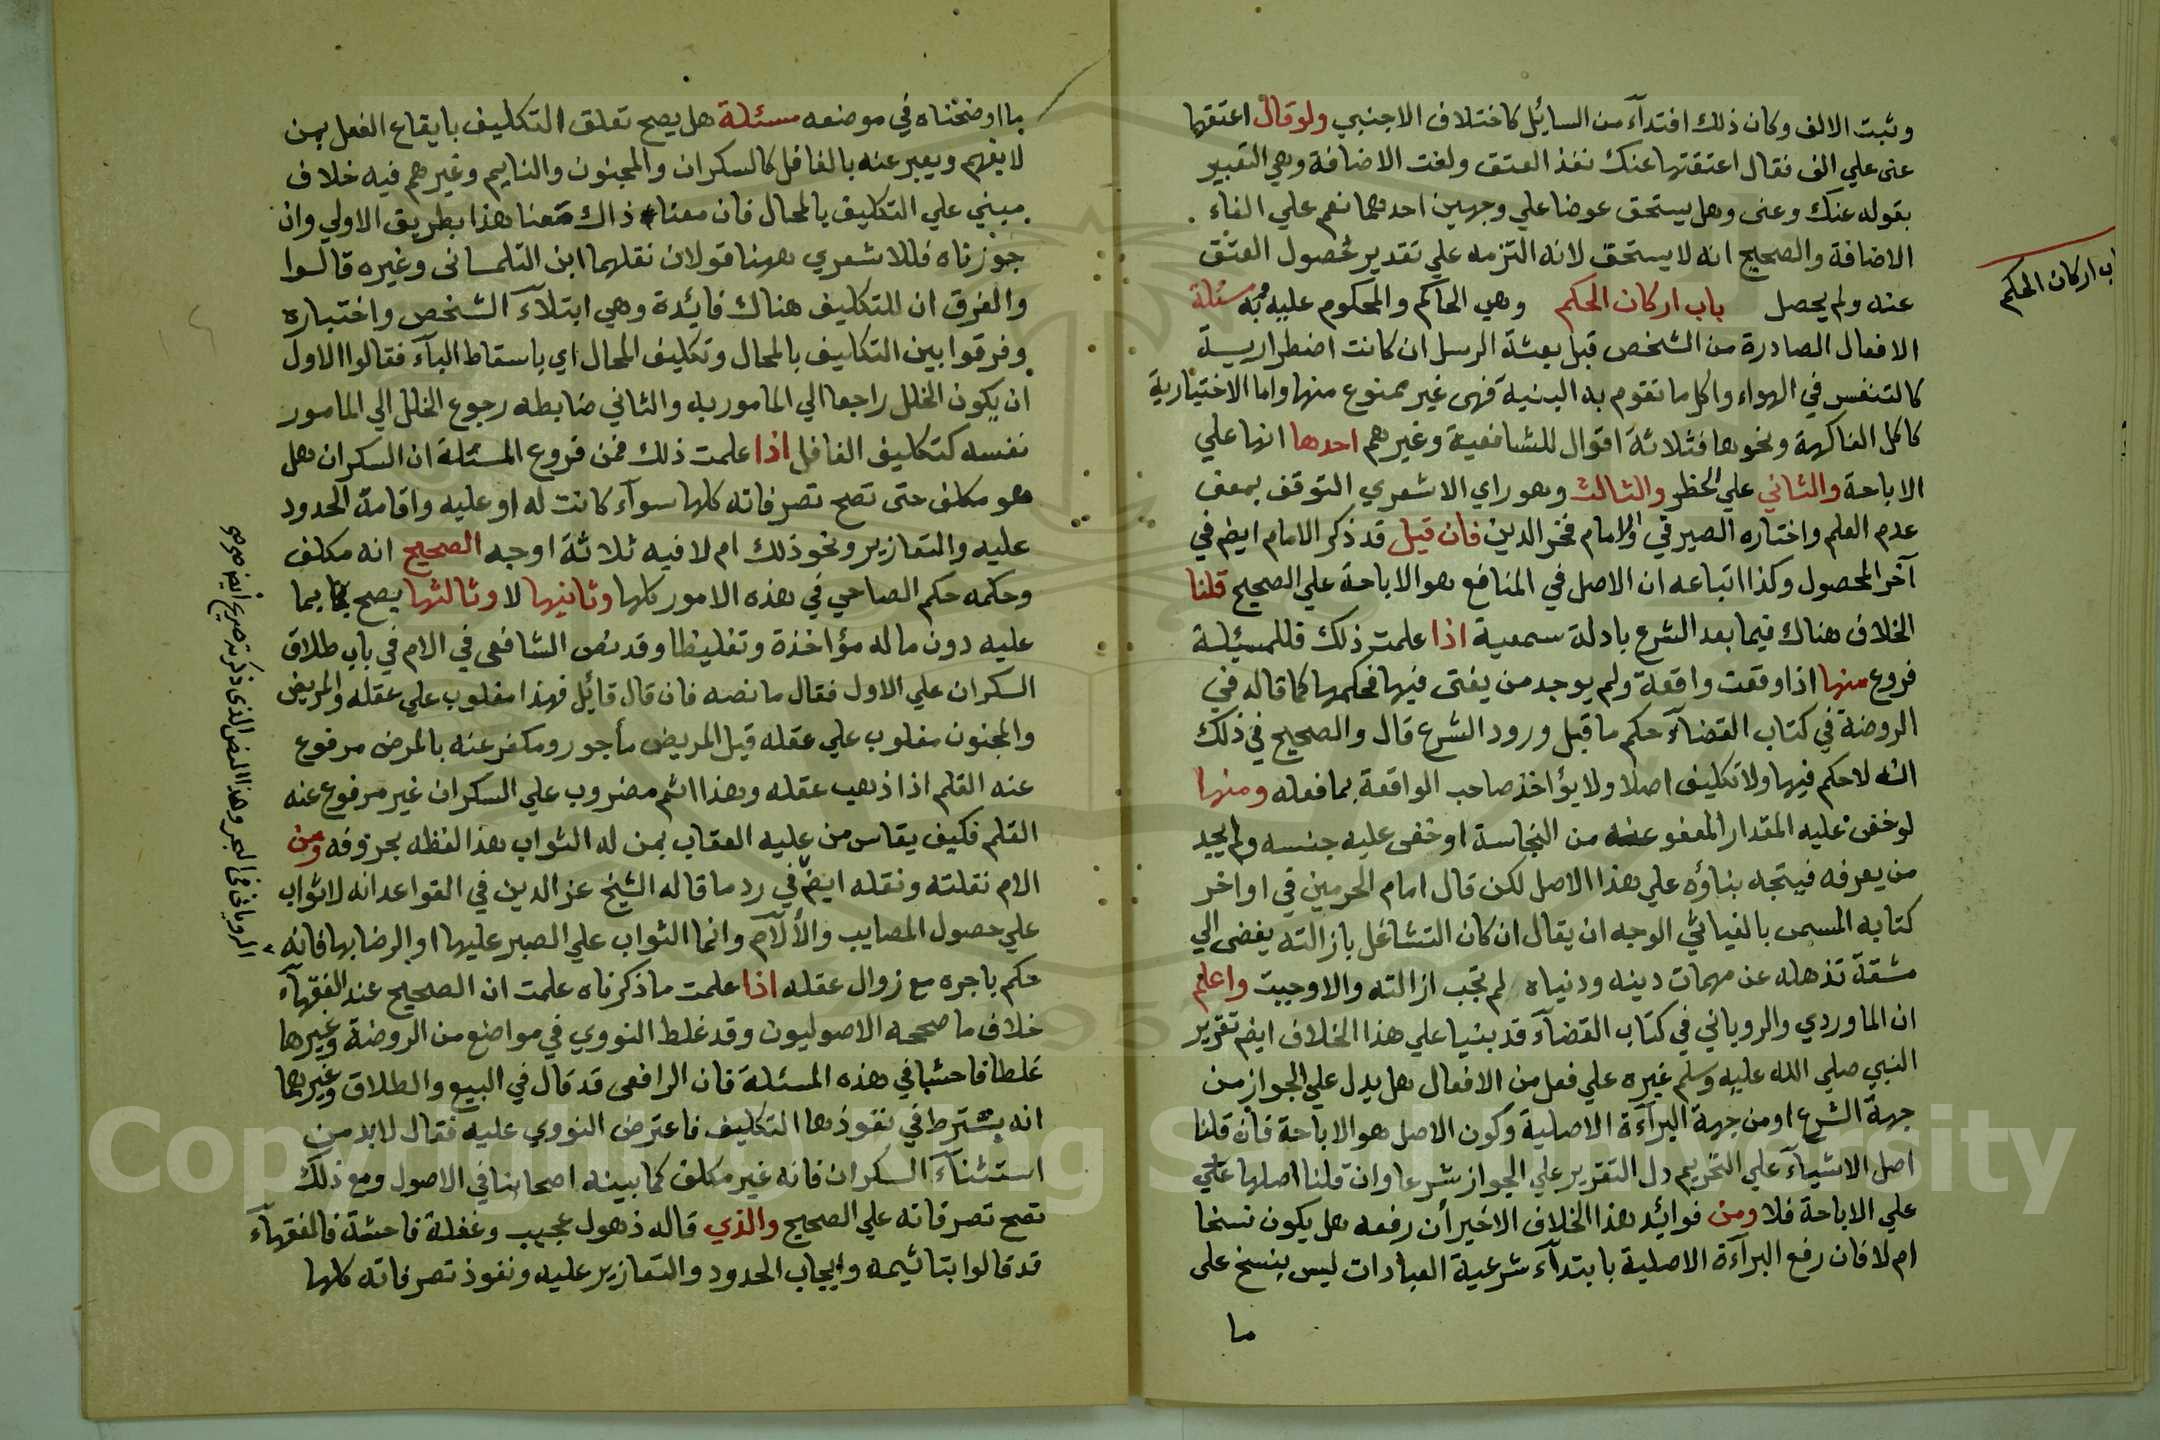 وثبت الالف وكان ذلك افتدآء من السائل كاختلاف الاجنبي ولو قال اعتقها
عنى علي الف فقال اعتقتها عنك نفذ العتق ولغت الاضافة وهي التقيير
بقوله عنك وعنى وهل يستحق عوضا علي وجهين احدهما نعم علي الغاء
الاضافة والصحيح انه لا يستحق لانه التزمه علي تقدير حصول العتق
عنه ولم يحصل باب اركان الحكم وهي الحاكم والمحكوم عليه وبه مسئلة
باب اركان الحكم
الافعال الصادرة من الشخص قبل بعثة الرسل ان كانت اضطرارية
كالتنفس في الهواء واكل ما تقوم به البنية فهى غير ممنوع منها واما الاختيارية
كاكل الفاكهة ونحوها فثلاثة اقوال للشافعية وغيرهم احدها انها علي
الاباحة والثاني علي الحظر والثالث وهو راي الاشعري التوقف بمعنى
عدم العلم واختاره الصيرفي والامام فخر الدين فان قيل قد ذكر الامام ايضم في
آخر المحصول وكذا اتباعه ان الاصل في المنافع هو الاباحة علي الصحيح قلنا
الخلاف هناك فيما بعد الشرع بادلة سمعية اذا علمت ذلك فللمسئلة
فروع منها اذا وقعت واقعة ولم يوجد من يفتى فيها فحكمها كما قاله في
الروضة في كتاب القضآء حكم ما قبل ورود الشرع قال والصحيح في ذلك
انه لا حكم فيها ولا تكليف اصلا ولا يؤاخذ صاحب الواقعة بما فعله ومنها
لو خفى عليه المقدار المعفو عنه من النجاسة او خفى عليه جنسه ولم يجد
من يعرفه فيتجه بناؤه علي هذا الاصل لكن قال امام الحرمين في اواخر
كتابه المسمى بالغياثي الوجه ان يقال ان كان التشاغل بازالته يفضى الي
مشقة تذهله عن مهمات دينه ودنياه لم تجب ازالته والا وجبت واعلم
ان الماوردي والروياني في كتاب القضآء قد بنيا علي هذا الخلاف ايضم تقرير
النبي صلي الله عليه وسلم غيره علي فعل من الافعال هل يدل علي الجواز من
جهة الشرع او من جهة البرآءة الاصلية وكون الاصل هو الاباحة فان قلنا
اصل الاشيآء علي التحريم دل التقرير علي الجواز شرعا وان قلنا اصلها علي
علي الاباحة فلا ومن فوائد هذا الخلاف الاخير أن رفعه هل يكون نسخا
ام لا فان رفع البرآءة الاصلية بابتدآء شرعية العبادات ليس بنسخ على
ما
ما اوضحناه في موضعه مسئلة هل يصح تعلق التكليف بايقاع الفعل بمن
لا يفهم ويعبر عنه بالغافل كالسكران والمجنون والنايم وغيرهم فيه خلاف
مبني علي التكليف بالمحال فان معناه ذاك منعنا هذا بطريق الاولي وان
جوزناه فللاشعري ههنا قولان نقلهما ابن التلمسانى وغيره قالوا
والفرق ان للتكليف هناك فائدة وهي ابتلآء الشخص واختباره
وفرقوا بين التكليف بالمحال وتكليف المحال اي باسقاط البآء فقالوا الاول
ان يكون الخلل راجعا الي المامور به والثاني ضابطه رجوع الخلل الي المامور
نفسه كتكليف الغافل اذا علمت ذلك فمن فروع المسئلة ان السكران هل
هو مكلف حتى تصح تصرفاته كلها سوآء كانت له او عليه واقامة الحدود
عليه والتعازير ونحو ذلك ام لا فيه ثلاثة اوجه الصحيح انه مكلف
وحكمه حكم الصاحي في هذه الامور كلها وثانيها لا وثالثها يصح بما
عليه دون ما له مؤاخذة وتغليظا وقد نص الشافعى في الام في باب طلاق
السكران علي الاول فقال ما نصه فان قال قائل فهذا مغلوب علي عقله والمريض
والمجنون مغلوب علي عقله قيل المريض مأجور ومكفر عنه بالمرض مرفوع
عنه القلم اذا ذهب عقله وهذا اثم مضروب علي السكران غير مرفوع عنه
القلم فكيف يقاس من عليه العقاب بمن له الثواب هذا لفظه بحروفه ومن
الام نقلته ونقله ايضم في رد ما قاله الشيخ عز الدين في القواعد انه لا ثواب
علي حصول المصايب والألآم وانما الثواب علي الصبر عليها او الرضا بها فانه
حكم باجره مع زوال عقله اذا علمت ما ذكرناه علمت ان الصحيح عند الفقهآء
خلاف ما صححه الاصوليون وقد غلط النووي في مواضع من الروضة وغيرها
غلطا فاحشا في هذه المسئلة فان الرافعى قد قال في البيع والطلاق وغيرهما
انه يشترط في نفوذها التكليف فاعترض النووي عليه فقال لا بد من
استثنآء السكران فانه غير مكلف كما بينه اصحابنا في الاصول ومع ذلك
تصح تصرفاته علي الصحيح والذي قاله ذهول عجيب وغفلة فاحشة فالفقهآء
قد قالوا بتاثيمه وايجاب الحدود والتعازير عليه ونفوذ تصرفاته كلها
الروياني في البحر وهذا النص الذى ذكرته صريح
Copyright © King Saud University